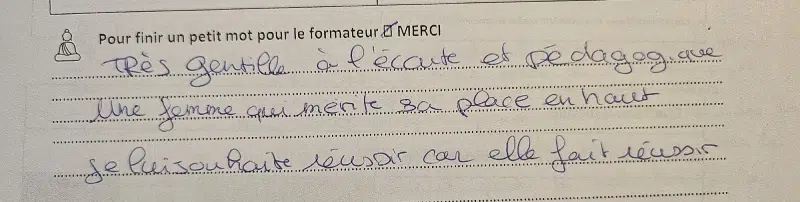 Pour finir un petit mot pour le formateur ☑ MERCI
Très gentille à l'écoute et pédagogique
Une femme qui mérite sa place en haut
Je lui souhaite réussir car elle fait réussir